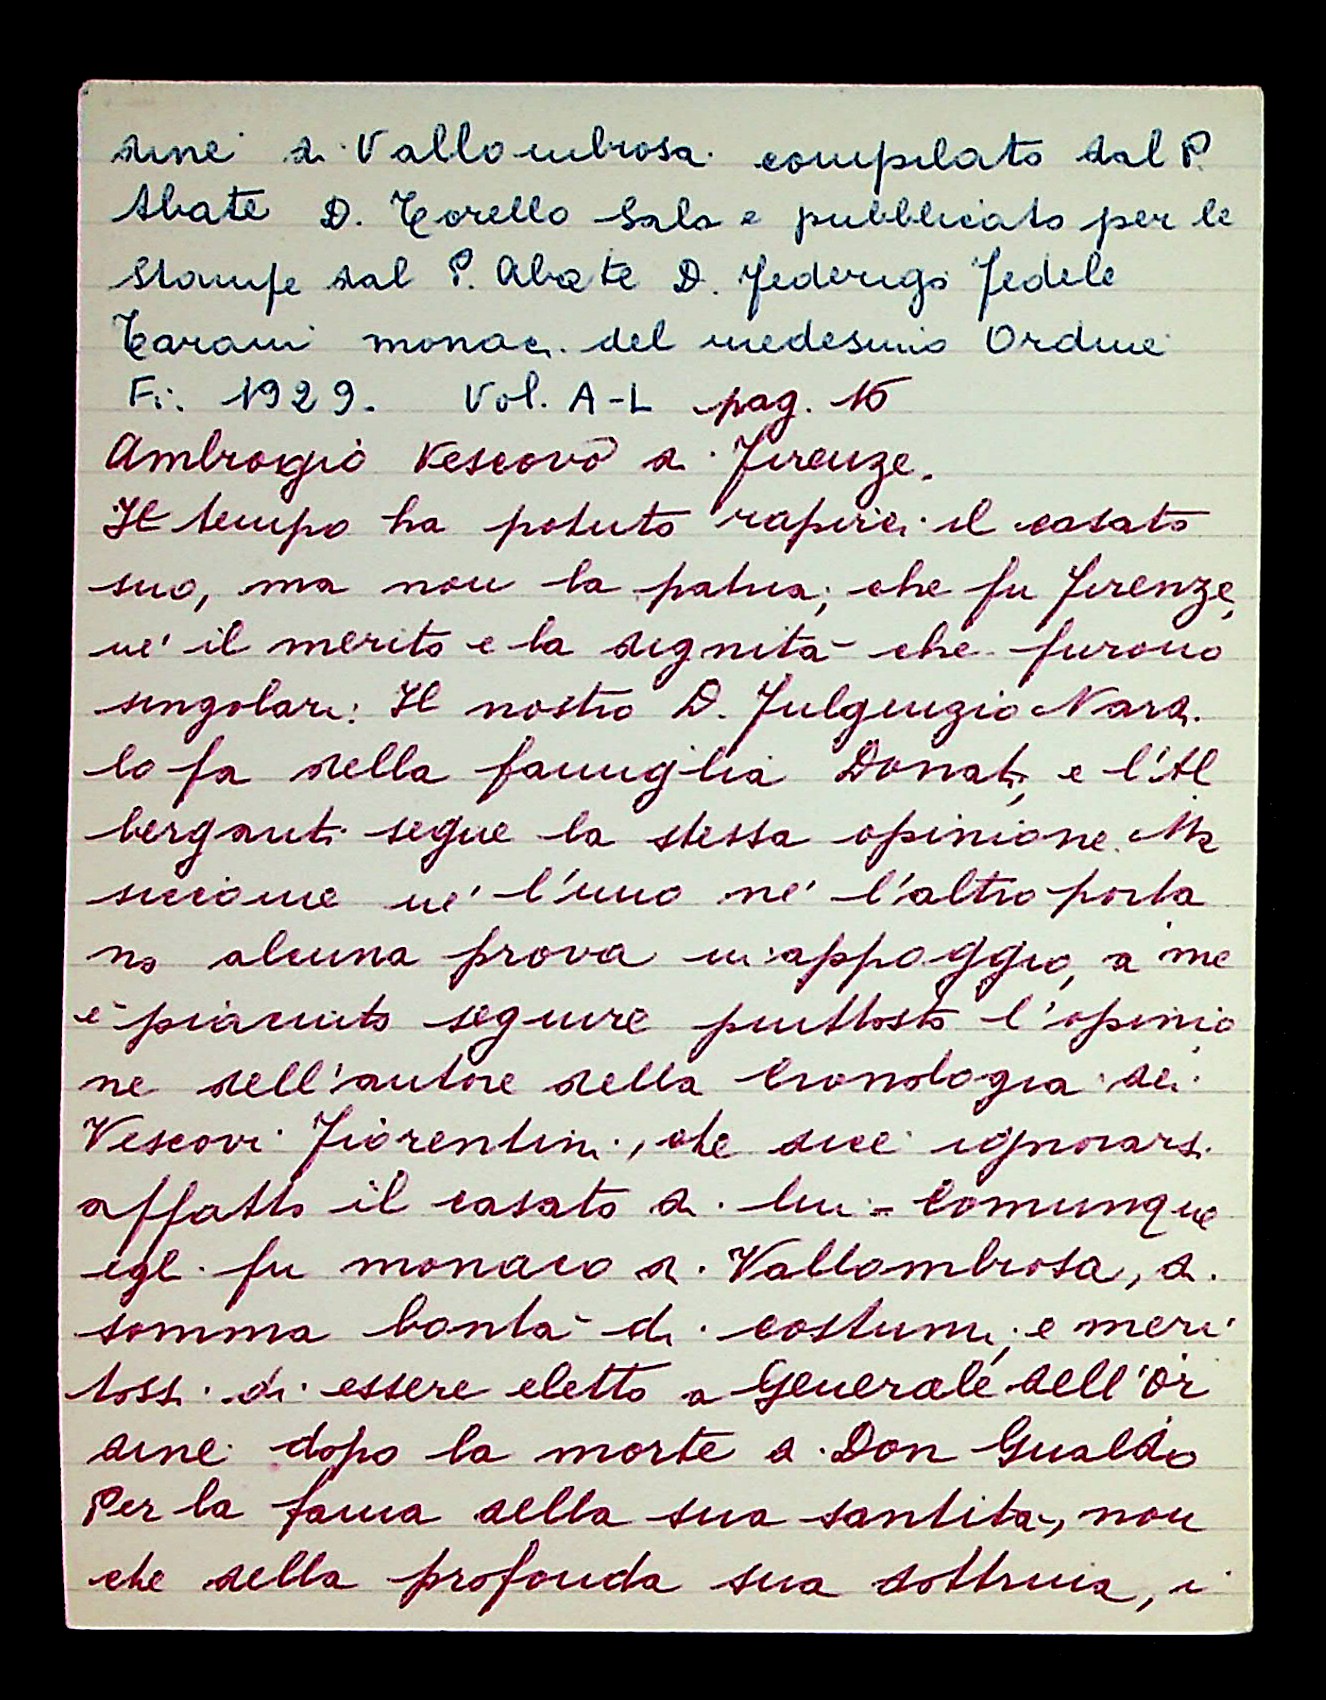 dine di Vallombrosa compilato dal P.
Abate D. Torello Sala e pubblicato per le
Stampe dal P. Abate D. Federigo Fedele
Tarani monaci del medesimo Ordine
Fi. 1929. Vol. A-L pag. 16
Ambrogio Vescovo di Firenze.
Il tempo ha potuto rapirci il casato
suo, ma non la patria, che fu Firenze,
ne' il merito e la dignità che furono
singolari: Il nostro D. Fulgenzio Nardi
lo fa della famiglia Donati, e l'Al
bergauti segue la stessa opinione. Ma
siccome ne' l'uno ne' l'altro porta
no alcuna prova in appoggio, a me
è piaciuto seguire piuttosto l'opinio
ne dell'autore della Cronologia dei
Vescovi Fiorentini, che dice ignorarsi
affatto il casato di lui - Comunque
egli fu monaco di Vallombrosa, di
somma bontà di costumi, e meri
tossi di essere eletto a Generale dell'Or
dine dopo la morte di Don Gualdo
Per la fama della sua santità, non
che della profonda sua dottrina, i